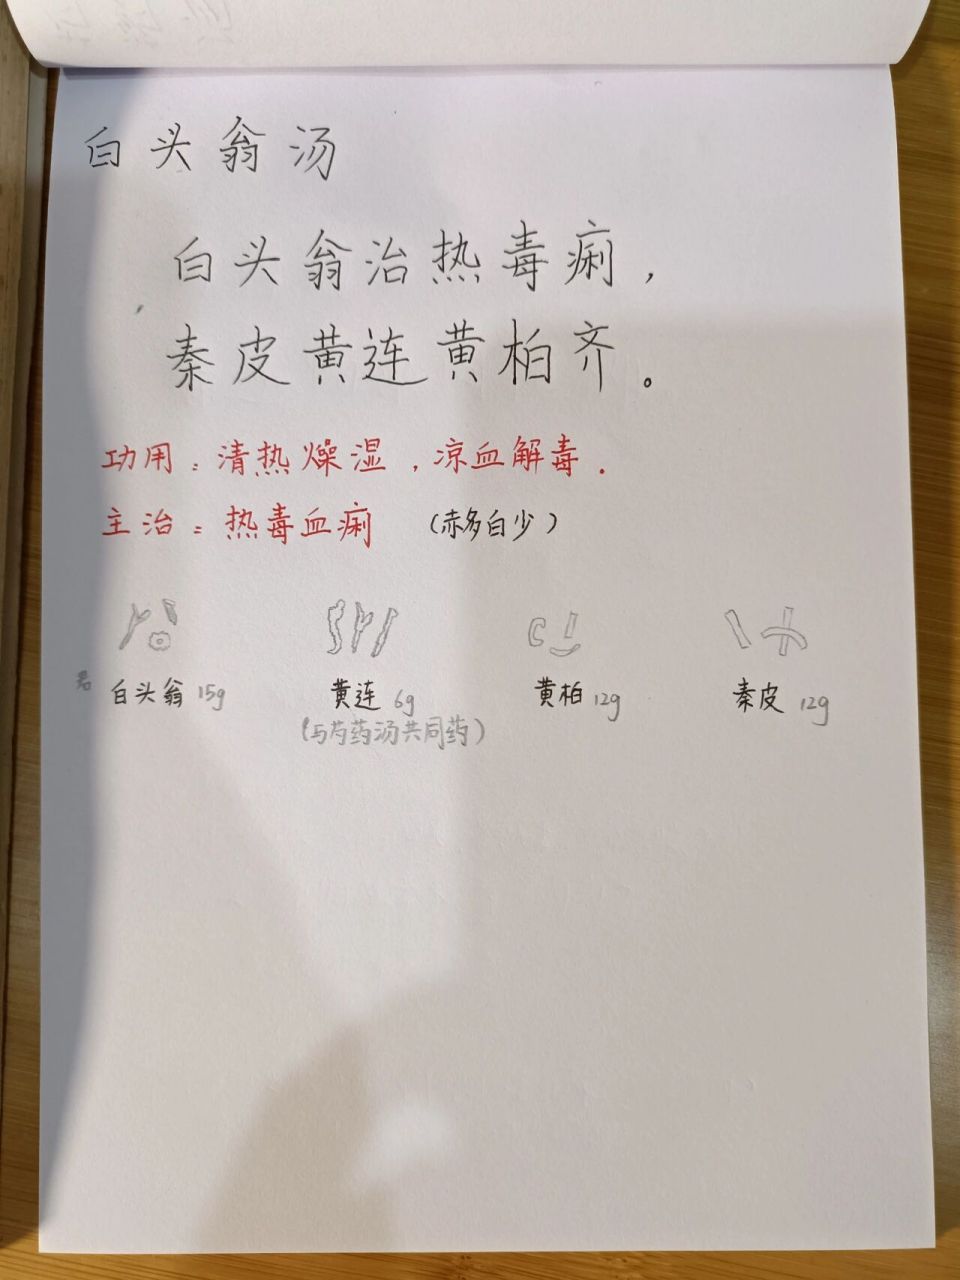 白头翁汤
白头翁治热毒痢，
秦皮黄连黄柏齐。
功用：清热燥湿，凉血解毒.
主治：热毒血痢 （赤多白少）
君 白头翁 15g 黄连 6g 黄柏 12g 秦皮 12g
（与芍药汤共同药）